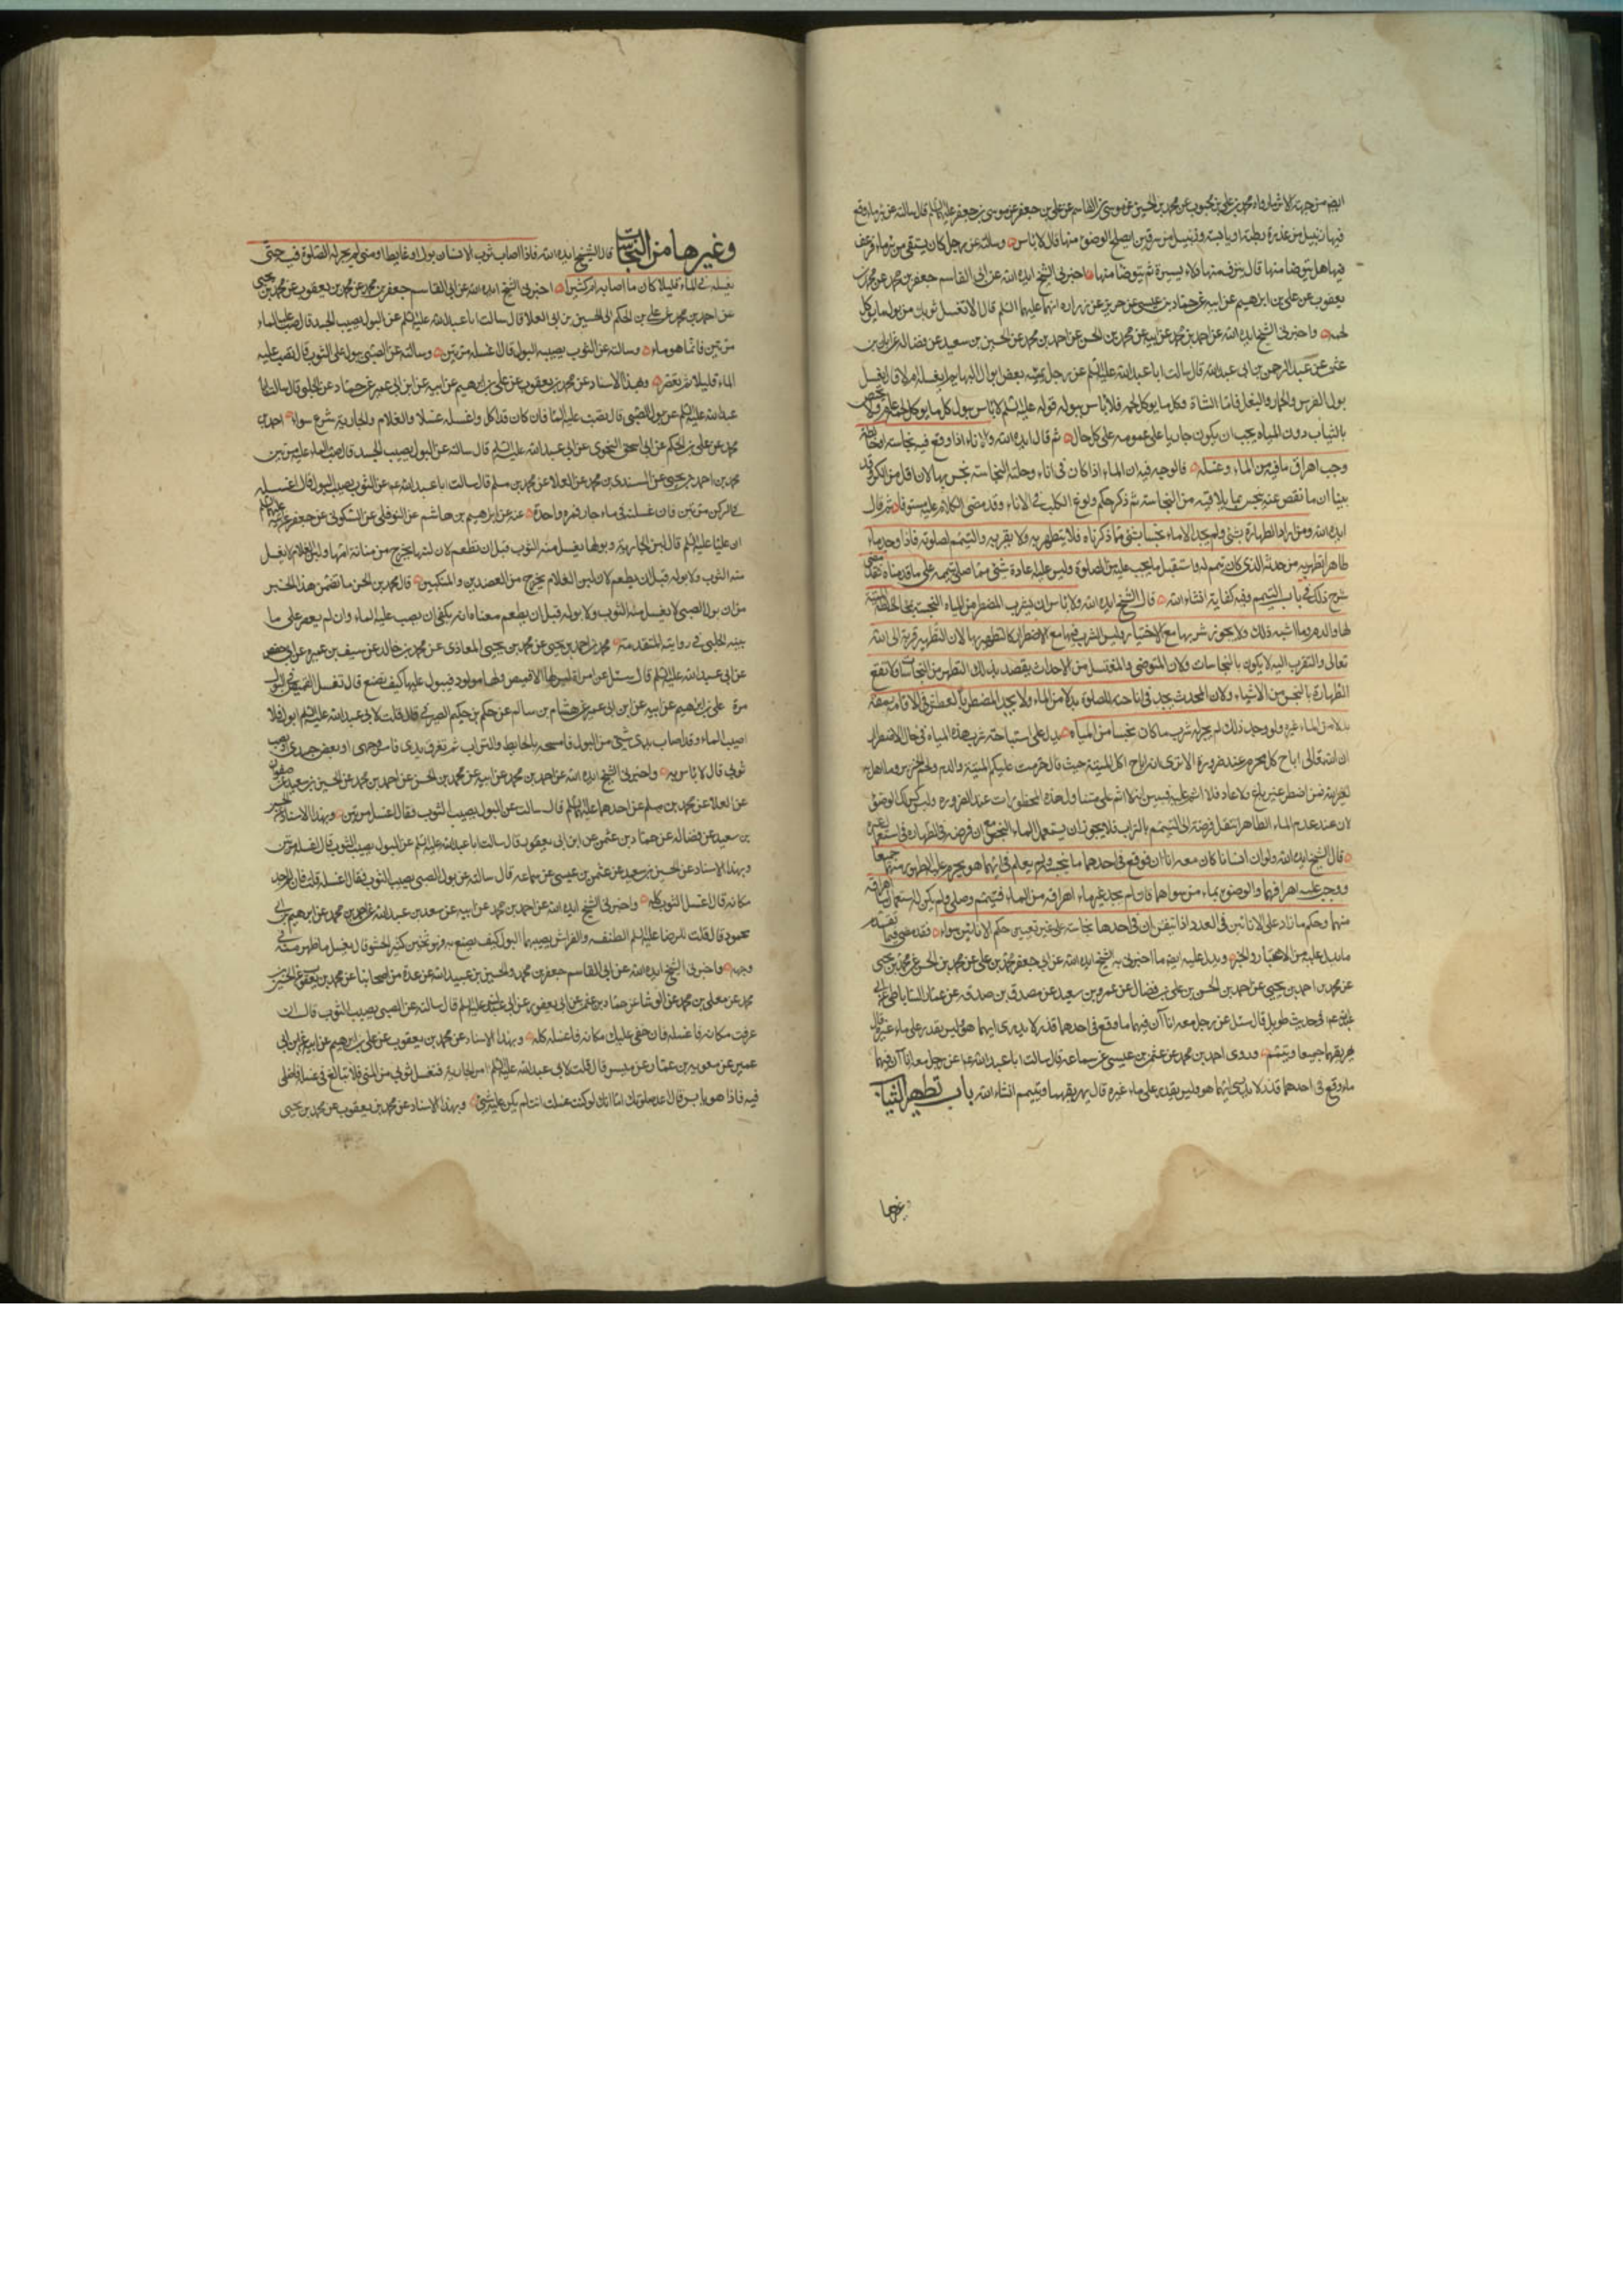 ايضا من جهة الاثر ما رواه محمد بن علي بن محبوب عن محمد بن الحسين عن موسى بن القاسم عن علي بن جعفر عن موسى بن جعفر عليهما السلم قال سالته عن بئر ماء وقع
فيها زنبيل من عذرة رطبة او يابسة او زنبيل من سرقين ايصلح الوضوء منها قال لا باس وسالته عن رجل كان يستقى من بئر ماء فرعف
فيها هل يتوضا منها قال ينزف منها دلاء يسيرة ثم يتوضا منها واخبرنى الشيخ ايده الله عن ابى القاسم جعفر بن محمد عن محمد بن
يعقوب عن على بن ابرهيم عن ابيه عن حماد بن عيسى عن حريز عن زراره انهما عليهما السلم قال لا تغسل ثوبك من بول ما يوكل
لحمه واخبرنى الشيخ ايده الله عن احمد بن محمد عن ابيه عن محمد بن الحسن عن احمد بن محمد عن الحسين بن سعيد عن فضاله عن ابان بن
عثمن عن عبد الرحمن بن ابى عبد الله قال سالت ابا عبد الله عليه السلم عن رجل يمسه بعض ابوال البهايم ايغسله ام لا قال يغسل
بول الفرس والحمار والبغل فاما الشاة وكل ما يوكل لحمه فلا باس ببوله قوله عليه السلم لا باس ببول كل ما يوكل لحمه عام ولا يختص
بالثياب دون المياه يجب ان يكون جاريا على عمومه على كل حال ثم قال ايده الله والاناء اذا وقع فيه نجاسة
وجب اهراق ما فيه من الماء وغسله فالوجه فيه ان الماء اذا كان فى اناء وحلته النجاسة نجس بها لانه اقل من الكر وقد
بينا ان ما نقص عنه ينجس بما يلاقيه من النجاسة ثم ذكر حكم ولوغ الكلب فى الاناء وقد مضى الكلام عليه مستوفا ثم قال
ايده الله ومن اراد الطهارة بشئ ولم يجد الا ماء نجسا بشئ مما ذكرناه فلا يتطهر به ولا يقربه والتيمم لصلوته فاذا وجد ماء
طاهرا تطهر به من حدثه الذى كان تيمم له واستقبل ما يجب عليه من الصلوة وليس عليه اعادة شئ مما صلى بتيممه على ما قدمناه
شرح ذلك فى باب التيمم وفيه كفاية انشاء الله قال الشيخ ايده الله ولا باس ان يشرب المضطر من المياه النجسة بمخالطة الميتة
لها والدم وما اشبه ذلك ولا يجوز شربها مع الاختيار وليس الشرب منها مع الاضطرار كالتطهر بها لان التطهر قربة الى الله
تعالى والتقرب اليه لا يكون بالنجاسات ولان المتوضى والمغتسل من الاحداث يقصد بذلك التطهر من النجاسات ولا تقع
الطهارة بالنجس من الاشياء ولان المحدث يجد فى اباحته للصلوة بدلا من الماء ولا يجد المضطر بالعطش فى الاغلب
بدلا من الماء غيره ولو وجد ذلك لم يجز له شرب ما كان نجسا من المياه يدل على استباحة شرب هذه المياه فى حال الاضطرار
ان الله تعالى اباح كل محرم عند ضرورة الا ترى انه اباح اكل الميتة حيث قال حرمت عليكم الميتة والدم ولحم الخنزير وما اهل
لغير الله فمن اضطر غير باغ ولا عاد فلا اثم عليه فبين ان لا اثم على متناول هذه المحظورات عند الضرورة وليس كذلك الوضوء
لان عند عدم الماء الطاهر انتقل فرضه الى التيمم بالتراب فلا يجوز ان يستعمل الماء النجس مع ان فرضه فى الطهارة فى استعمال غيره
قال الشيخ ايده الله ولو ان انسانا كان معه اناءان فوقع فى احدهما ما ينجسه ولم يعلم فى ايهما هو يحرم عليه الطهور منهما جميعا
ووجب عليه اهراقهما والوضوء بماء من سواهما فان لم يجد غير ماء اهراقه من الماء فتيمم وصلى ولم يكن له استعمال ما اهراقه
منهما وحكم ما زاد على الانائين فى العدد اذا تيقن ان فى احدها نجاسة على غير تعيين حكم الانائين سواء فقد مضى فيما تقدم
ما يدل عليه من الاعتبار والخبر ويدل عليه ايضا ما اخبرنى به الشيخ ايده الله عن ابى جعفر محمد بن على عن محمد بن الحسن عن محمد بن يحيى
عن محمد بن احمد بن يحيى عن احمد بن الحسن بن على بن فضال عن عمرو بن سعيد عن مصدق بن صدقه عن عمار الساباطى عن ابى
عبد الله ع فى حديث طويل قال سئل عن رجل معه اناآن فيهما ماء وقع فى احدهما قذر لا يدرى ايهما هو وليس يقدر على ماء غيره قال
يهريقهما جميعا ويتيمم وروى احمد بن محمد عن عثمن بن عيسى عن سماعه قال سالت ابا عبد الله ع عن رجل معه اناآن فيهما
ماء وقع فى احدهما قذر لا يدرى ايهما هو وليس يقدر على ماء غيره قال يهريقهما ويتيمم انشاء الله باب تطهير الثياب
وغيرها
وغيرها من النجاسات قال الشيخ ايده الله فاذا اصاب ثوب الانسان بول او غايط او منى لم يجز له الصلوة فيه حتى
يغسله فى الماء قليلا كان ما اصابه ام كثيرا اخبرنى الشيخ ايده الله عن ابى القاسم جعفر بن محمد عن محمد بن يعقوب عن محمد بن يحيى
عن احمد بن محمد عن على بن الحكم عن الحسين بن ابى العلا قال سالت ابا عبد الله عليه السلم عن البول يصيب الجسد قال صب عليه الماء
مرتين فانما هو ماء وسالته عن الثوب يصيبه البول قال غسله مرتين وسالته عن الصبى يبول على الثوب قال يصب عليه
الماء قليلا ثم يعصر وبهذا الاسناد عن محمد بن يعقوب عن على بن ابرهيم عن ابيه عن ابن ابى عمير عن حماد عن الحلبى قال سالت ابا
عبد الله عليه السلم عن بول الصبى قال يصب عليه الماء فان كان قد اكل فاغسله غسلا والغلام والجاريه شرع سواء احمد بن
محمد عن على بن الحكم عن ابى اسحق النحوى عن ابى عبد الله عليه السلم قال سالته عن البول يصيب الجسد قال صب الماء عليه مرتين
محمد بن احمد بن يحيى عن السندى بن محمد عن العلا عن محمد بن مسلم قال سالت ابا عبد الله ع عن الثوب يصيبه البول قال اغسله
فى المركن مرتين فان غسلته فى ماء جار فمرة واحدة عنه عن ابرهيم بن هاشم عن النوفلى عن السكونى عن جعفر عن ابيه عليهما السلم
ان عليا عليه السلم قال لبن الجارية وبولها يغسل منه الثوب قبل ان تطعم لان لبنها يخرج من مثانة امها ولبن الغلام لا يغسل
منه الثوب ولا بوله قبل ان يطعم لان لبن الغلام يخرج من العضدين والمنكبين قال محمد بن الحسن ما تضمن هذا الخبر
من ان بول الصبى لا يغسل منه الثوب ولا بوله قبل ان يطعم معناه انه يكفى ان يصب عليه الماء وان لم يعصر على ما
بينه الحلبى فى روايته المتقدمة محمد بن احمد بن يحيى عن محمد بن يحيى المعاذى عن محمد بن خالد عن سيف بن عميره عن ابى حفص
عن ابى عبد الله عليه السلم قال سئل عن امراة ليس لها الا قميص ولها مولود فيبول عليها كيف تصنع قال تغسل القميص فى اليوم
مرة على بن ابرهيم عن ابيه عن ابن ابى عمير عن هشام بن سالم عن حكم بن حكيم الصيرفى قال قلت لابى عبد الله عليه السلم ابول فلا
اصيب الماء وقد اصاب يدى شئ من البول فامسحه بالحايط والتراب ثم تعرق يدى فامس وجهى او بعض جسدى او يصيب
ثوبى قال لا باس به واخبرنى الشيخ ايده الله عن احمد بن محمد عن ابيه عن محمد بن الحسن عن احمد بن محمد عن الحسين بن سعيد عن صفوان
عن العلا عن محمد بن مسلم عن احدهما عليهما السلم قال سالته عن البول يصيب الثوب فقال اغسله مرتين وبهذا الاسناد عن الحسين
بن سعيد عن فضاله عن حماد بن عثمن عن ابن ابى يعفور قال سالت ابا عبد الله عليه السلم عن البول يصيب الثوب قال اغسله مرتين
وبهذا الاسناد عن الحسين بن سعيد عن عثمن بن عيسى عن سماعه قال سالته عن بول الصبى يصيب الثوب فقال اغسله قلت فان لم اجد
مكانه قال اغسل الثوب كله واخبرنى الشيخ ايده الله عن احمد بن محمد عن ابيه عن سعد بن عبد الله عن احمد بن محمد عن ابرهيم بن ابى
محمود قال قلت للرضا عليه السلم الطنفسه والفراش يصيبهما البول كيف يصنع به فهو ثخين كثير الحشو قال يغسل ما ظهر منه فى
وجهه واخبرنى الشيخ ايده الله عن ابى القاسم جعفر بن محمد والحسين بن عبيد الله عن عدة من اصحابنا عن محمد بن يعقوب عن الحسين بن
محمد عن معلى بن محمد عن الوشا عن حماد بن عثمن عن ابن ابى يعفور عن ابى عبد الله عليه السلم قال سالته عن المنى يصيب الثوب قال ان
عرفت مكانه فاغسله فان خفى عليك مكانه فاغسله كله وبهذا الاسناد عن محمد بن يعقوب عن على بن ابرهيم عن ابيه عن ابن ابى
عمير عن معويه بن عمار عن ميسر قال قلت لابى عبد الله عليه السلم امر الجاريه فتغسل ثوبى من المنى فلا تبالغ فى غسله فاصلى
فيه فاذا هو يابس قال اعد صلوتك اما انك لو كنت غسلت انت لم يكن عليك شئ وبهذا الاسناد عن محمد بن يعقوب عن محمد بن يحيى